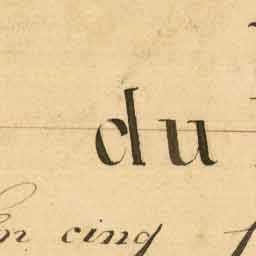 du
En cinq